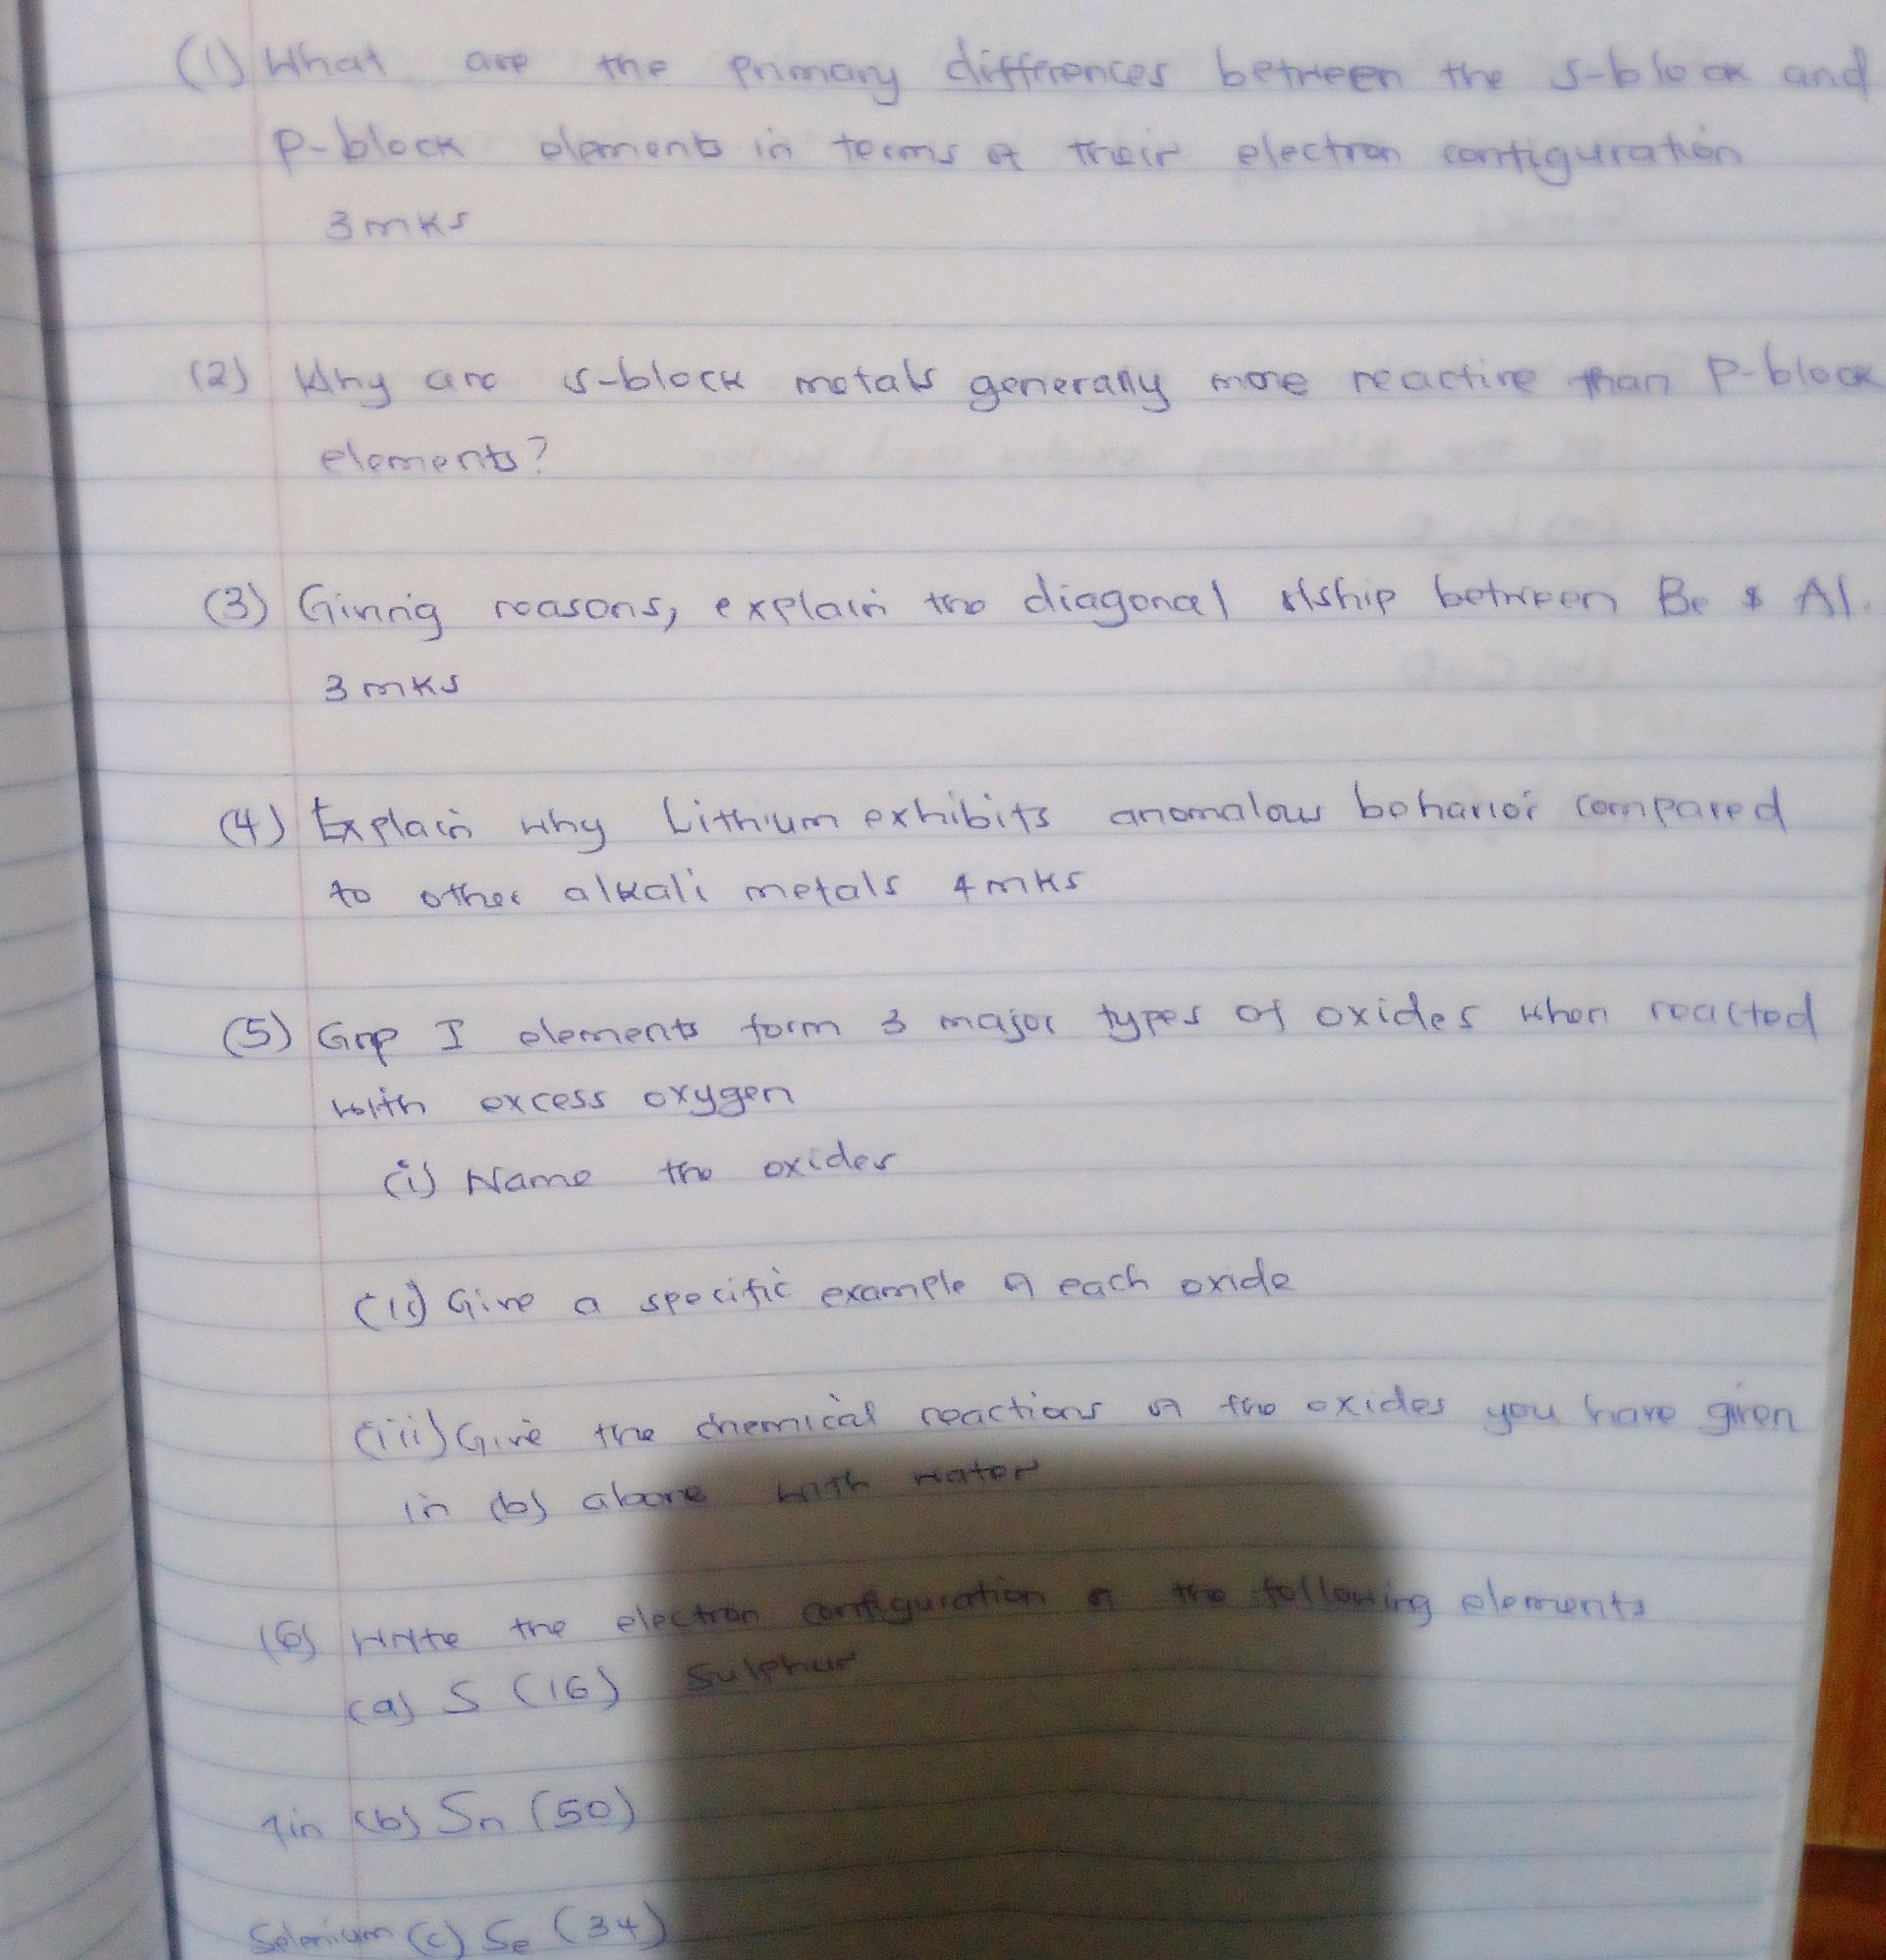 (1) What are the primary differences between the s-block and
p-block elements in terms of their electron configuration
3mks
(2) Why are s-block metals generally more reactive than p-block
elements?
(3) Giving reasons, explain the diagonal r/ship between Be & Al.
3mks
(4) Explain why Lithium exhibits anomalous behavior compared
to other alkali metals 4mks
(5) Grp I elements form 3 major types of oxides when reacted
with excess oxygen
(i) Name the oxides
(ii) Give a specific example of each oxide
(iii) Give the chemical reactions of the oxides you have given
in (b) above with water
(6) Write the electron configuration of the following elements
(a) S (16) Sulphur
Tin (b) Sn (50)
Selenium (c) Se (34)